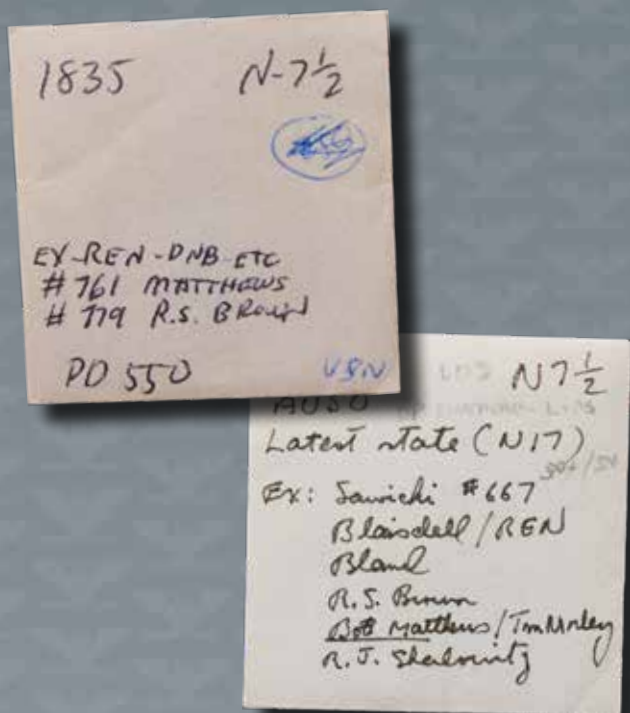 1835 N-7½
EX-REN-DNB-ETC
# 761 MATTHEWS
# 779 R.S. BROWN
PD 550 VSN
N7½
AU50
Latest state (N17)
Ex: Sawicki #667
Blaisdell/REN
Bland
R.S. Brown
Bob Matthews/Tom Morley
R.J. Shalowitz